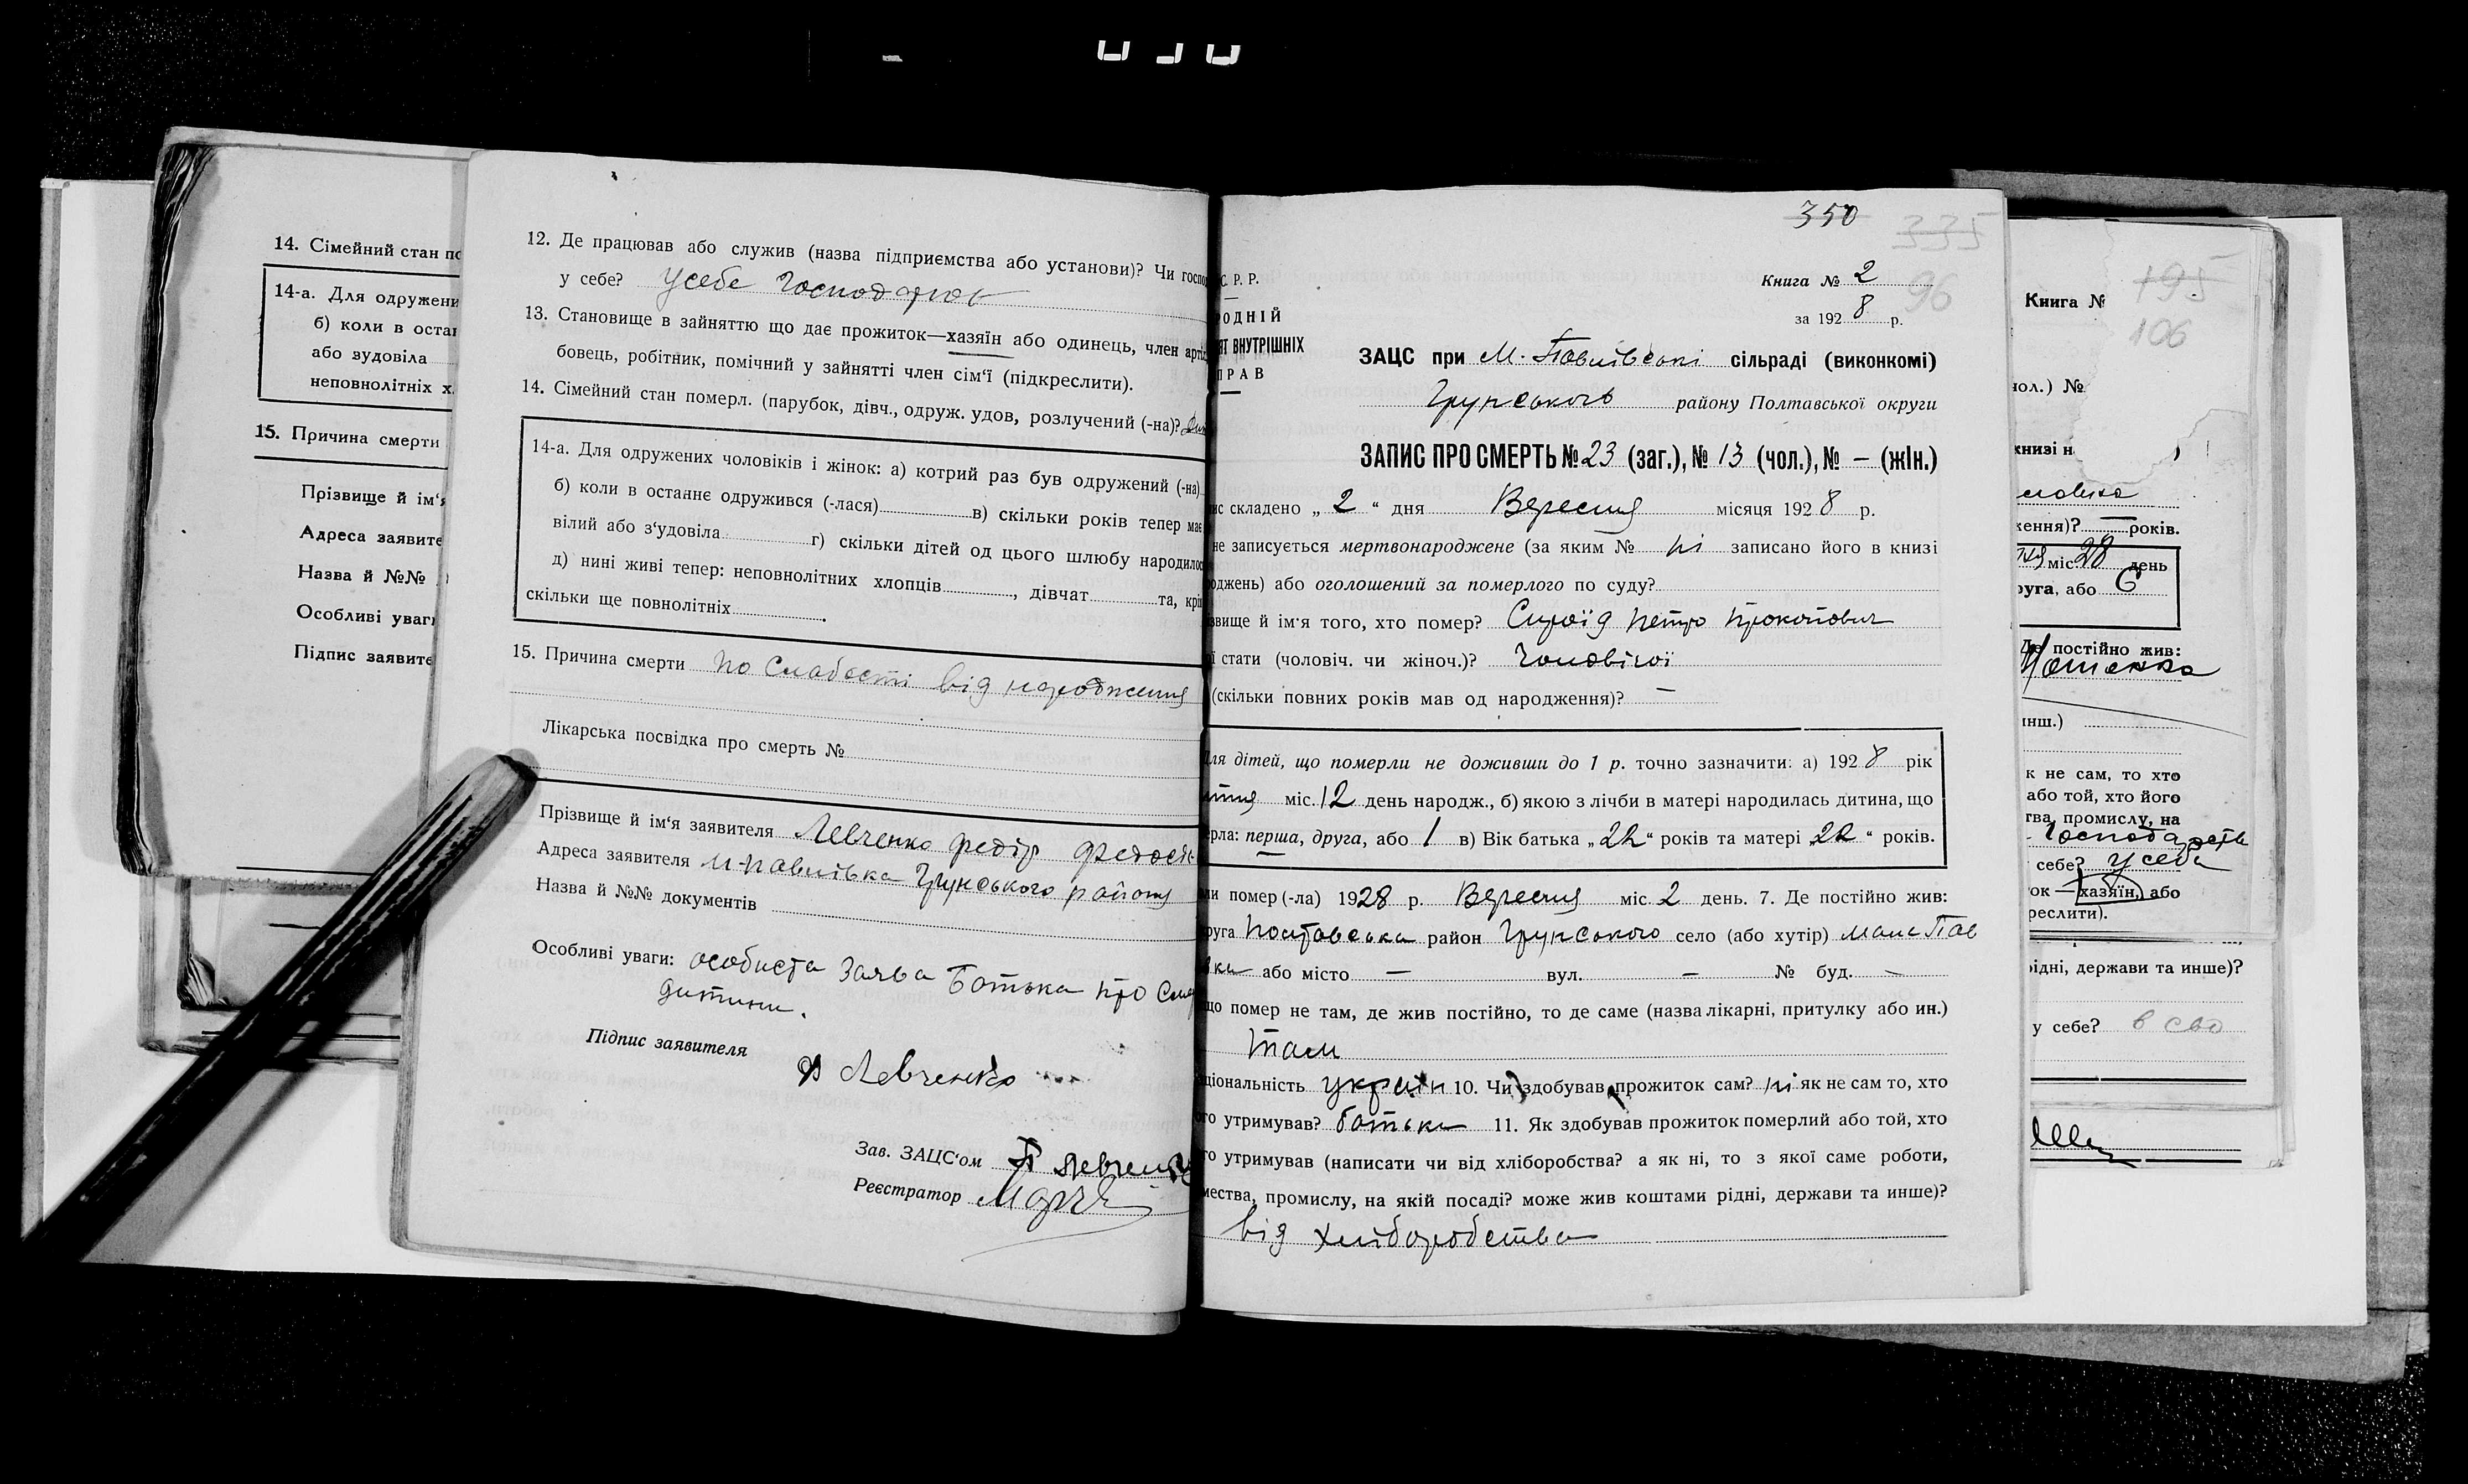 14. Сімейний стан по
14-а. Для одружени
б) коли в остан
або вудовіла
неповнолітніх х
15. Причина смерти
Прізвище й ім'я
Адреса заявите
Назва й №№
Особливі уваги
Підпис заявите
12. Де працював або служив (назва підприємства або установи)? Чи госпо
у себе? Усебе Господарює
13. Становище в зайняттю що дає прожиток—хазяїн або одинець, член арті
бовець, робітник, помічний у зайнятті член сім'ї (підкреслити).
14. Сімейний стан померл. (парубок, дівч., одруж. удов, розлучений (-на)?
14-а. Для одружених чоловіків і жінок: а) котрий раз був одружений (-на)
б) коли в останнє одружився (-лася) в) скільки років тепер має
вілий або з'удовіла г) скільки дітей од цього шлюбу народилос
д) нині живі тепер: неповнолітних хлопців , дівчат та, крі
скільки ще повнолітніх .
15. Причина смерти По Слабості від народження
Лікарська посвідка про смерть №
Прізвище й ім'я заявителя Левченко Федір
Адреса заявителя М-Павлівка Грунського району
Назва й №№ документів
Особливі уваги: особиста Заява Батька про Сме
дитини.
Підпис заявителя
Ф Левченко
Зав. ЗАЦС'ом
Реєстратор
350
335
С. Р. Р.
Книга № 2
96
за 192 8 р.
РОДНІЙ
ЯТ ВНУТРІШНІХ
ПРАВ
ЗАЦС при М. Павлівські сільраді (виконкомі)
Грунського району Полтавської округи
ЗАПИС ПРО СМЕРТЬ № 23 (заг.), № 13 (чол.), № – (жін.)
ис складено „ 2 “ дня Вересня місяця 192 8 р.
не записується мертвонароджене (за яким № ні записано його в книзі
оджень) або оголошений за померлого по суду?
звище й ім'я того, хто помер? Сироїд Петро Прокопович
ї стати (чоловіч. чи жіноч.)? Чоловічої
(скільки повних років мав од народження)? –
Для дітей, що померли не доживши до 1 р. точно зазначити: а) 192 8 рік
міс. 12 день народж., б) якою з лічби в матері народилась дитина, що
ерла: перша, друга, або 1 в) Вік батька „22“ років та матері „22“ років.
ли помер (-ла) 1928 р. Вересня міс. 2 день. 7. Де постійно жив:
руга Полтавська район Грунського село (або хутір) Мала Пав
вка або місто – вул. – № буд. –
що помер не там, де жив постійно, то де саме (назва лікарні, притулку або ин.)
Там
ціональність україн 10. Чи здобував прожиток сам? ні як не сам то, хто
ого утримував? батьки 11. Як здобував прожиток померлий або той, хто
го утримував (написати чи від хліборобства? а як ні, то з якої саме роботи,
мества, промислу, на якій посаді? може жив коштами рідні, держави та инше)?
від хліборобства
Книга №
195
106
чол.) №
книзі н
ження)? – років.
міс. 28 день
руга, або 6
Де постійно жив:
инш.)
к не сам, то хто
або той, хто його
тва, промислу, на
себе? у себе
ок — хазяїн, або
реслити).
рідні, держави та инше)?
у себе?